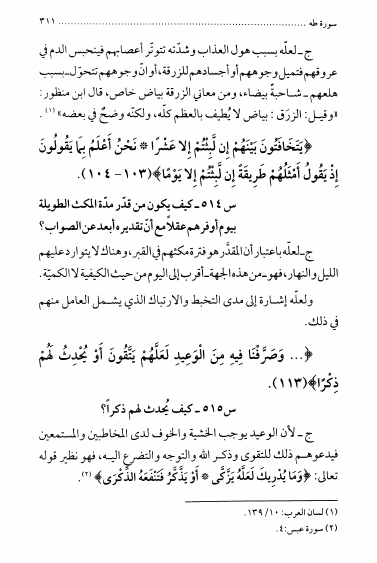 سورة طه ................................................................ ٣١١
ج ـ لعلّه بسبب هول العذاب وشدّته تتوتّر أعصابهم فينحبس الدم في
عروقهم فتميل وجوههم أو أجسادهم للزرقة، أو أنّ وجوههم تتحوّل ـ بسبب
هلعهم ـ شاحبةً بيضاء، ومن معاني الزرقة بياض خاص، قال ابن منظور:
«وقيل: الزرَق: بياض لا يُطيف بالعظم كلّه، ولكنّه وضحٌ في بعضه» (١).
﴿يَتَخَافَتُونَ بَيْنَهُمْ إِن لَّبِثْتُمْ إِلا عَشْرًا * نَحْنُ أَعْلَمُ بِمَا يَقُولُونَ
إِذْ يَقُولُ أَمْثَلُهُمْ طَرِيقَةً إِن لَّبِثْتُمْ إِلا يَوْمًا﴾(١٠٣ - ١٠٤).
س٥١٤ ـ كيف يكون من قدر مدّة المكث الطويلة
بيوم أوفرهم عقلاً مع أنّ تقديره أبعد عن الصواب؟
ج ـ لعلّه باعتبار أن المقدَّر هو فترة مكثهم في القبر، وهناك لا يتوارد عليهم
الليل والنهار، فهو ـ من هذه الجهة ـ أقرب إلى اليوم من حيث الكيفية لا الكميّة.
ولعلّه إشارة إلى مدى التخبط والارتباك الذي يشمل العامل منهم
في ذلك.
﴿... وَصَرَّفْنَا فِيهِ مِنَ الْوَعِيدِ لَعَلَّهُمْ يَتَّقُونَ أَوْ يُحْدِثُ لَهُمْ
ذِكْرًا﴾(١١٣).
س٥١٥ ـ كيف يُحدث لهم ذكراً؟
ج ـ لأن الوعيد يوجب الخشية والخوف لدى المخاطبين والمستمعين
فيدعوهم ذلك للتقوى وذكر الله والتوجه والتضرع اليه، فهو نظير قوله
تعالى: ﴿وَمَا يُدْرِيكَ لَعَلَّهُ يَزَّكَّى * أَوْ يَذَّكَّرُ فَتَنْفَعَهُ الذِّكْرَى﴾ (٢).
(١) لسان العرب: ١٠ / ١٣٩.
(٢) سورة عبس: ٤.